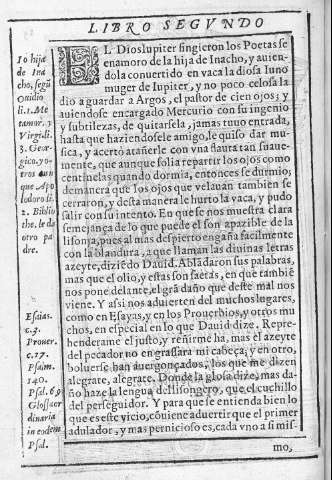 LIBRO SEGVNDO
Io hija
de Ina
cho, segū
Ouidio
li. 1. Me
tamor. y
Virgi. li.
3. Geor-
gico. y o-
tros aun
que Apo
lodoro li.
2. Biblio
the. le da
otro pa
dre.
EL Dios Iupiter fingieron los Poetas se
enamoro de la hija de Inacho, y auien-
dola conuertido en vaca la diosa Iuno
muger de Iupiter, y no poco celosa la
dio a guardar a Argos, el pastor de cien ojos; y
auiendose encargado Mercurio con su ingenio
y subtilezas, de quitarsela, jamas tuuo entrada,
hasta que haziendosele amigo, le quiso dar mu-
sica, y acertò atañerle con vna flauta tan suaue-
mente, que aunque solia repartir los ojos como
centinelas quando dormia, entonces se durmio;
demanera que los ojos que velauan tambien se
cerraron, y desta manera le hurto la vaca, y pudo
salir con su intento. En que se nos muestra clara
semejança de lo que puede el son apazible de la
lisonja, pues al mas despierto engaña facilmente
con la blandura, a que llaman las diuinas letras
azeyte, diziēdo Dauid. Ablādaron sus palabras,
mas que el olio, y estas son saetas, en que tambiē
nos pone delante, el grā daño que deste mal nos
viene. Y assi nos aduierten del muchos lugares,
como en Esayas, y en los Prouerbios, y otros mu
chos, en especial en lo que Dauid dize. Repre-
henderame el justo, y reñirme ha, mas el azeyte
del pecador no engrassara mi cabeça; y en otro,
boluerse han auergonçados, los que me dizen
alegrate, alegrate. Donde la glosa dize, mas da-
ño haze la lengua del lisongero, que el cuchillo
del perseguidor. Y para que se entienda bien lo
que es este vicio, cōuiene aduertir que el primer
adulador, y mas pernicioso es, cada vno a si mis-
mo,
Esaias.
c. 3.
Prouer.
c. 27.
Psalm.
140.
Psal. 69
Glos. or
dinaria
in eodem
Psal.